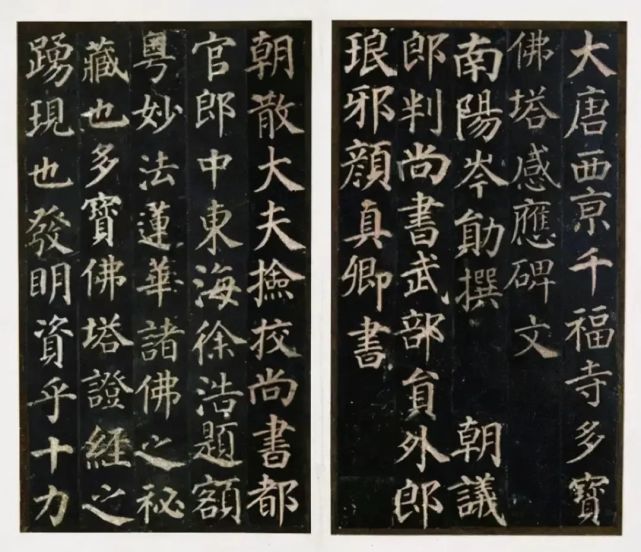 大唐西京千福寺多寶
佛塔感應碑文
南陽岑勛撰 朝議
郎判尚書武部員外郎
琅邪顏真卿書
朝散大夫撿挍尚書都
官郎中東海徐浩題額
粵妙法蓮華諸佛之秘
藏也多寶佛塔證經之
踴現也發明資乎十力